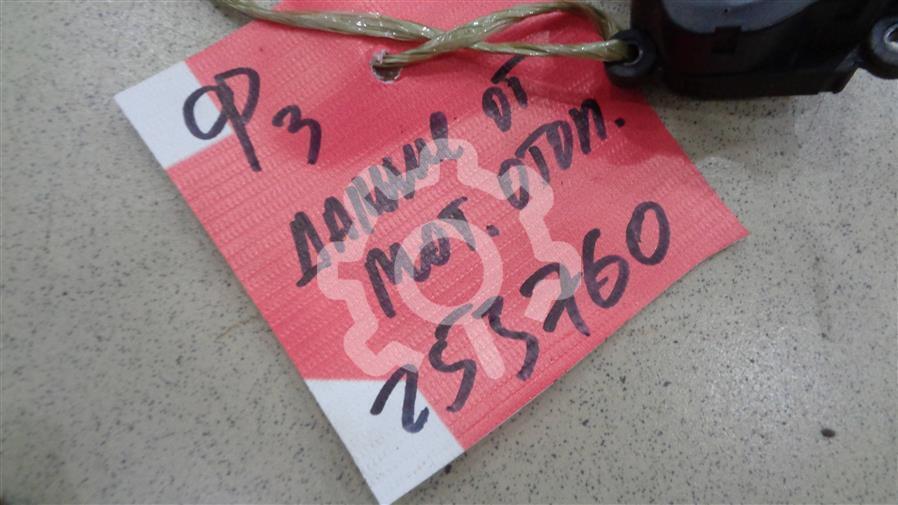 Ф3
ДАЛЬНИЕ ОТ
МОТ. ОТОП.
253760